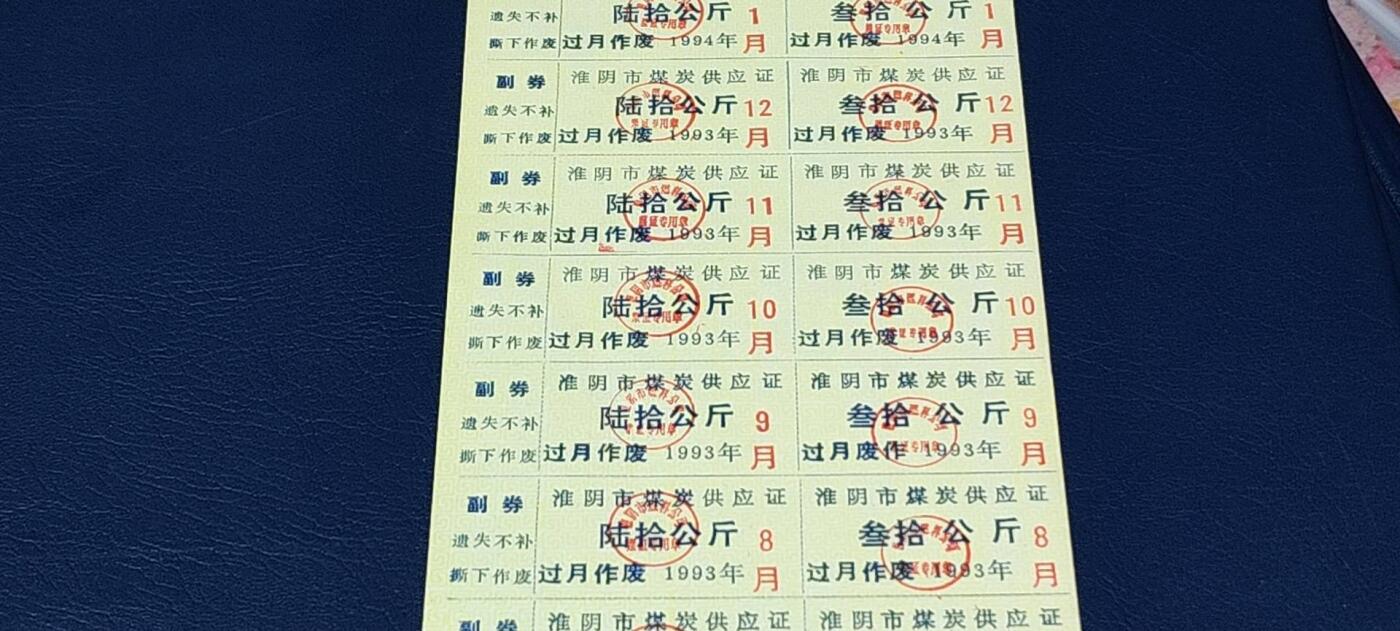 遗失不补 陆拾公斤 1 叁拾公斤 1
撕下作废 过月作废 1994年 月 过月作废 1994年 月
副券 淮阴市煤炭供应证 淮阴市煤炭供应证
遗失不补 陆拾公斤 12 叁拾公斤 12
撕下作废 过月作废 1993年 月 过月作废 1993年 月
副券 淮阴市煤炭供应证 淮阴市煤炭供应证
遗失不补 陆拾公斤 11 叁拾公斤 11
撕下作废 过月作废 1993年 月 过月作废 1993年 月
副券 淮阴市煤炭供应证 淮阴市煤炭供应证
遗失不补 陆拾公斤 10 叁拾公斤 10
撕下作废 过月作废 1993年 月 过月作废 1993年 月
副券 淮阴市煤炭供应证 淮阴市煤炭供应证
遗失不补 陆拾公斤 9 叁拾公斤 9
撕下作废 过月作废 1993年 月 过月废作 1993年 月
副券 淮阴市煤炭供应证 淮阴市煤炭供应证
遗失不补 陆拾公斤 8 叁拾公斤 8
撕下作废 过月作废 1993年 月 过月作废 1993年 月
副券 淮阴市煤炭供应证 淮阴市煤炭供应证